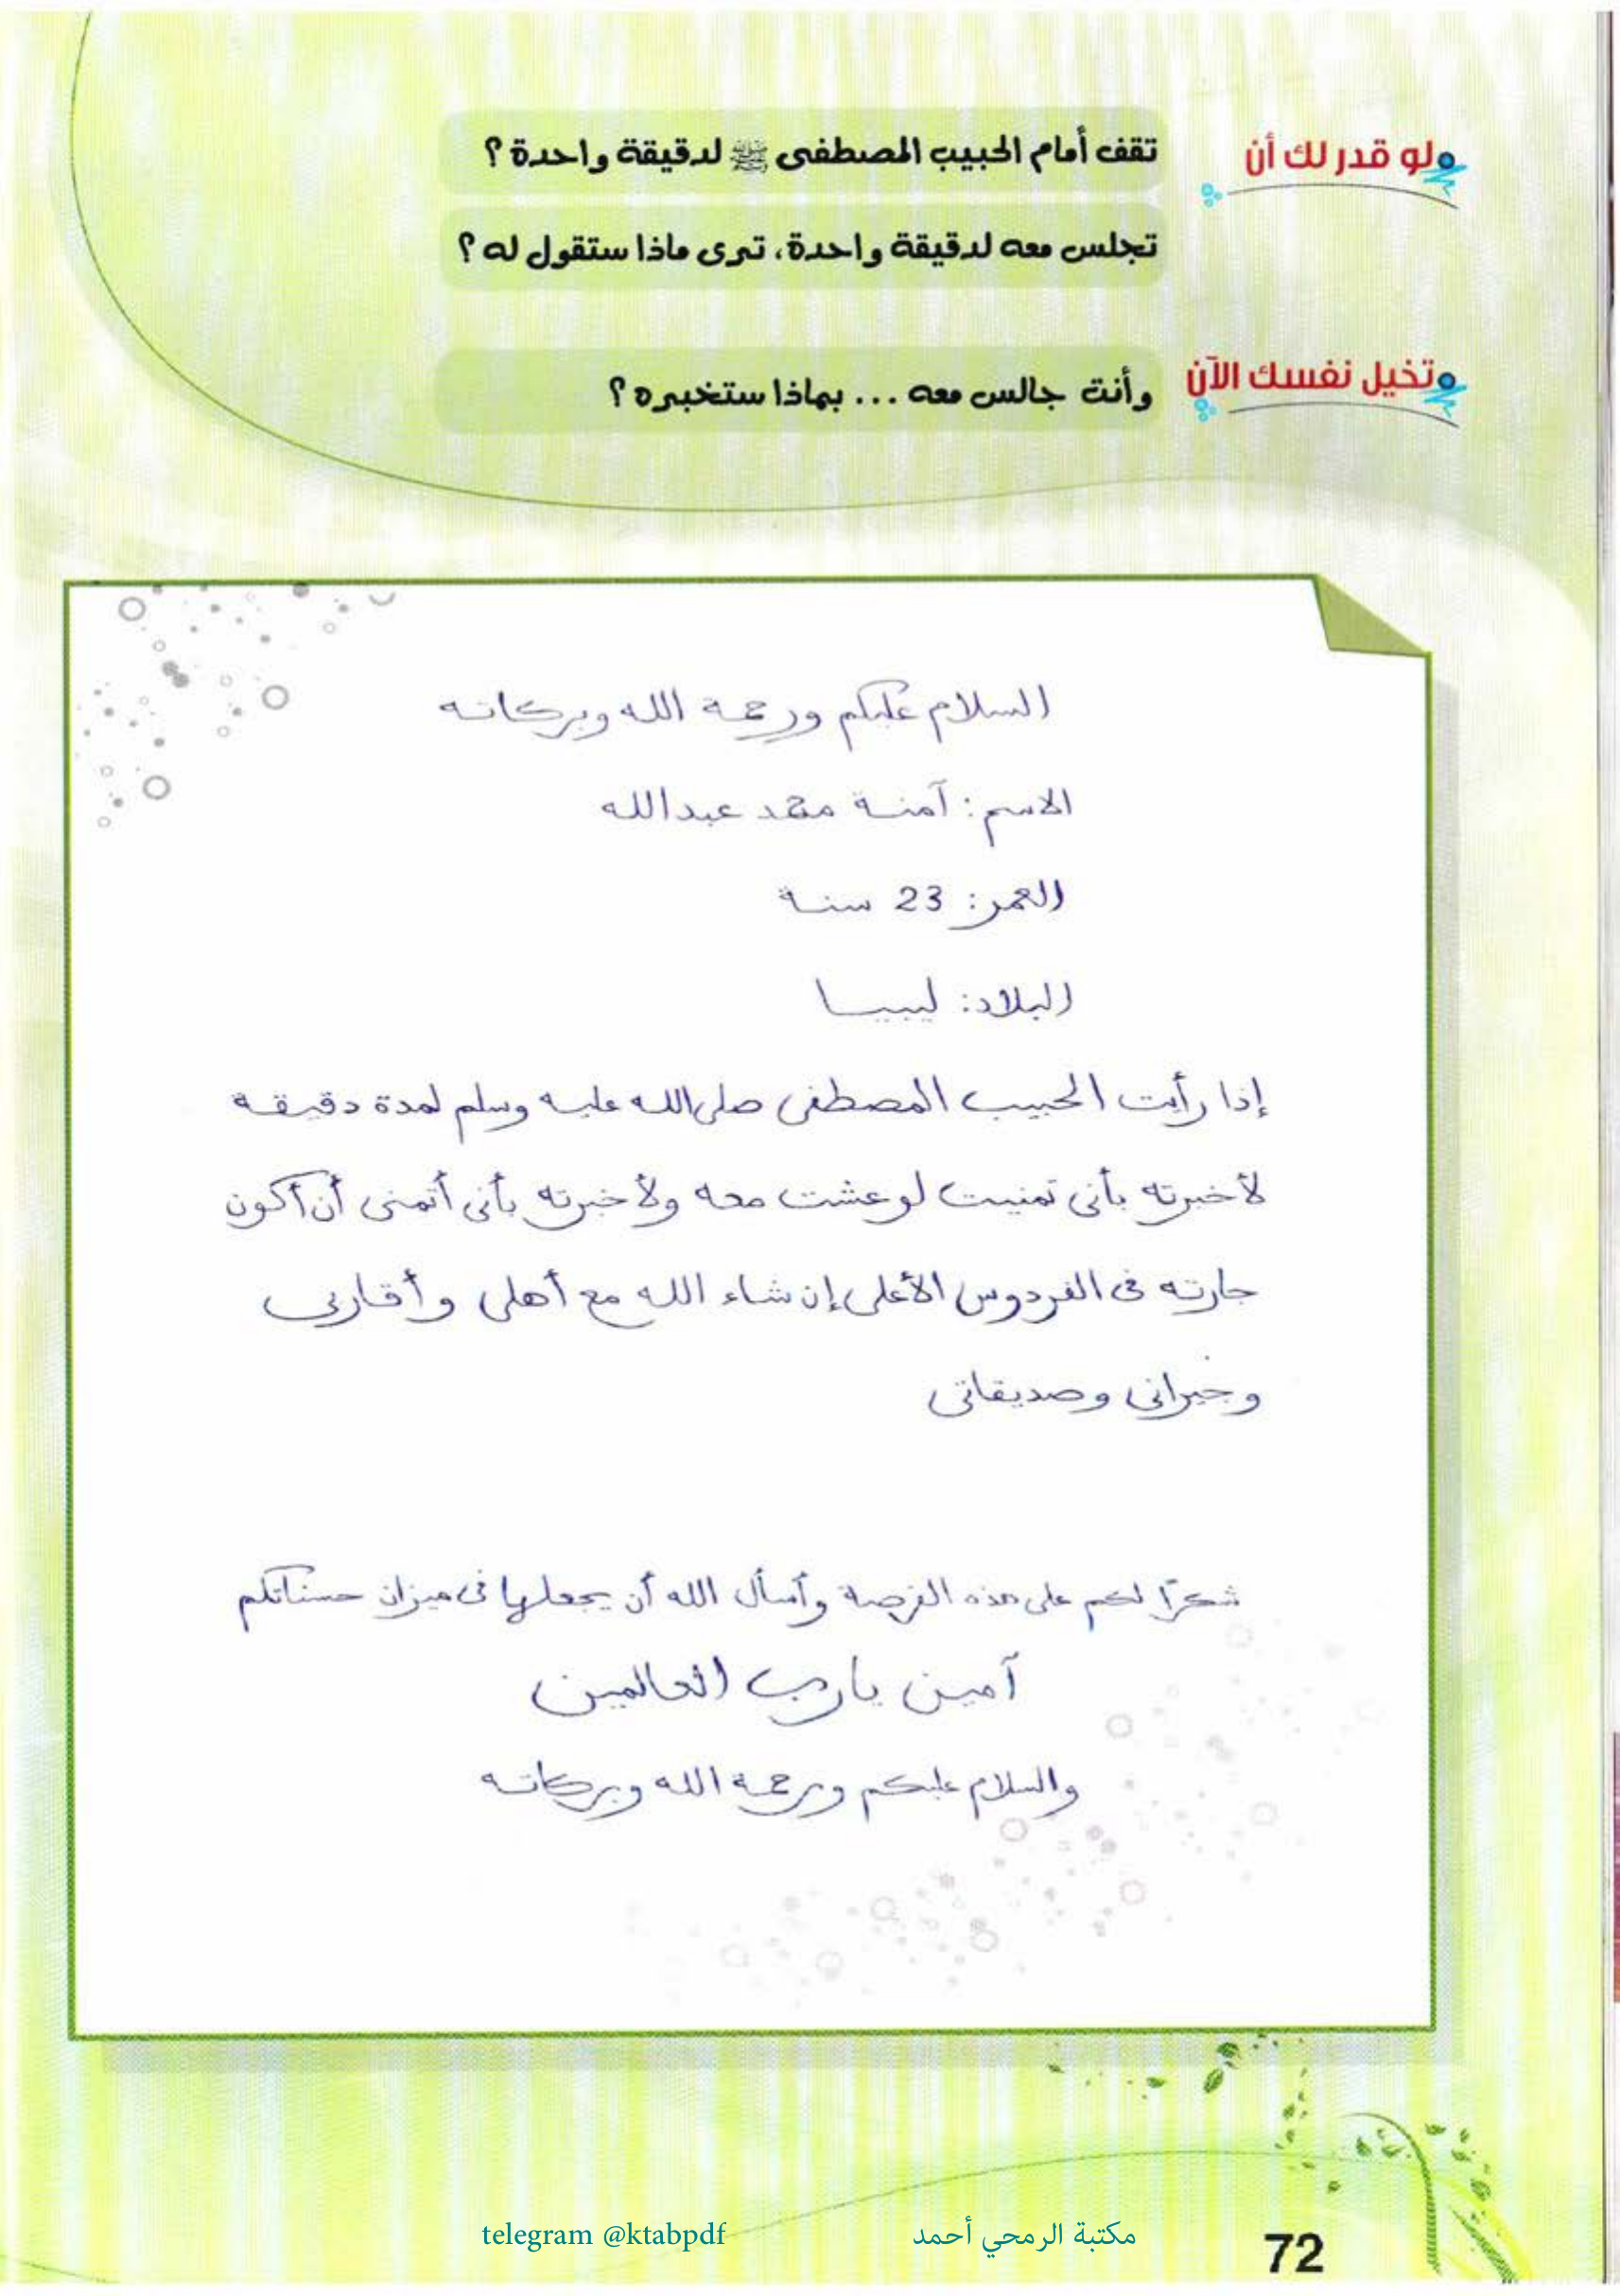 لو قدر لك أن
تقف أمام الحبيب المصطفى ﷺ لدقيقة واحدة ؟
تجلس معه لدقيقة واحدة، ترى ماذا ستقول له ؟
تخيل نفسك الآن
وأنت جالس معه ... بماذا ستخبره ؟
السلام عليكم ورحمة الله وبركاته
الاسم : آمنة محمد عبدالله
العمر: 23 سنة
البلاد: ليبيا
إذا رأيت الحبيب المصطفى صلى الله عليه وسلم لمدة دقيقة
لأخبرته بأنى تمنيت لو عشت معه ولأخبرته بأنى أتمنى أن أكون
جارته فى الفردوس الأعلى إن شاء الله مع أهلى وأقاربى
وجيرانى وصديقاتى
شكرًا لكم على هذه الفرصة وأسأل الله أن يجعلها فى ميزان حسناتكم
آمين يارب العالمين
والسلام عليكم ورحمة الله وبركاته
مكتبة الرمحي أحمد telegram @ktabpdf
72